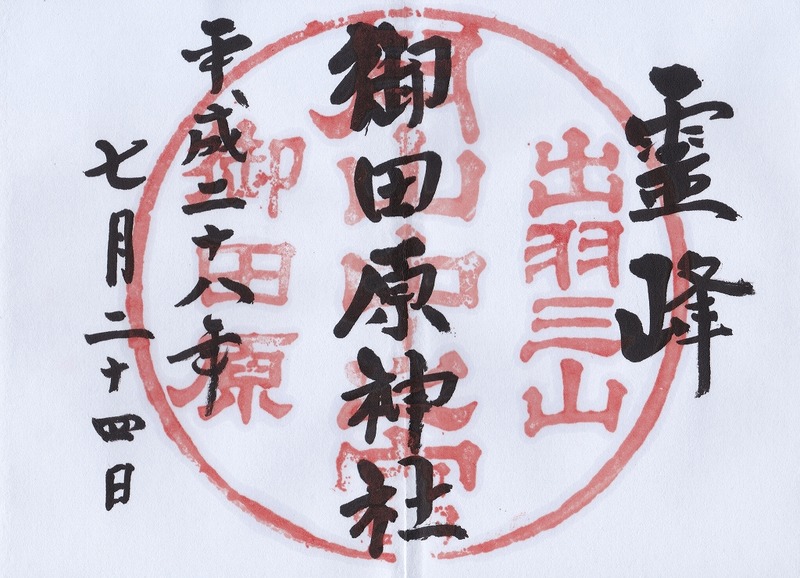 霊峰
出羽三山
月山中之宮
御田原神社
御田原
平成二十八年
七月二十四日